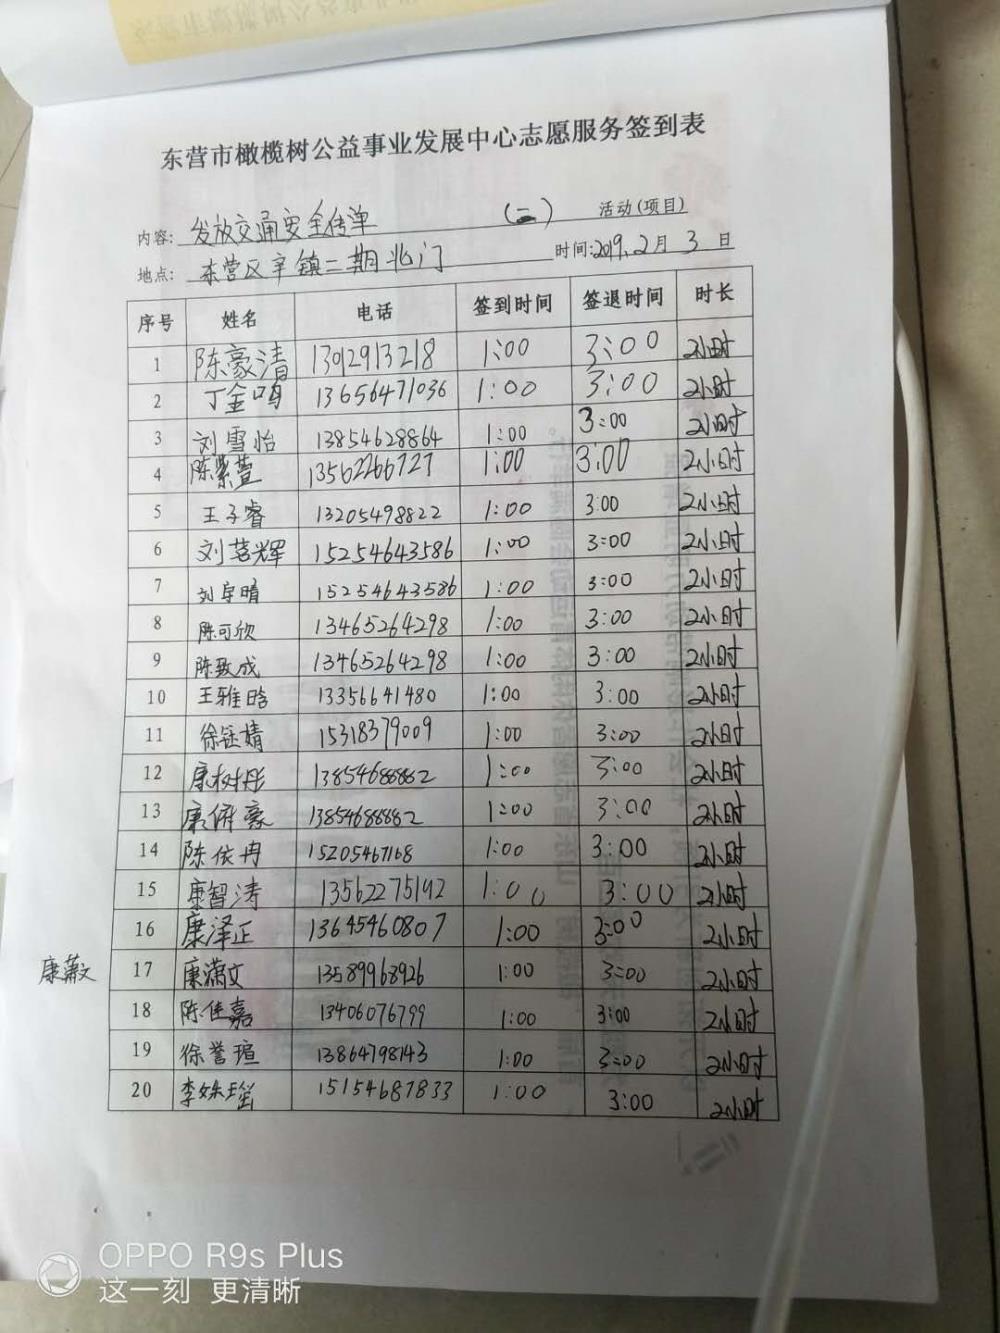 东营市橄榄树公益事业发展中心志愿服务签到表
内容: 发放交通安全传单 (二) 活动(项目)
地点: 东营区辛镇二期北门 时间:2019.2月3日
序号 姓名 电话 签到时间 签退时间 时长
1 陈豪清 1:00 3:00 2小时
2 丁金鸣 13656471036 1:00 3:00 2小时
3 刘雪怡 13854628864 1:00 3:00 2小时
4 陈紫萱 13562266727 1:00 3:00 2小时
5 王子睿 13205498822 1:00 3:00 2小时
6 刘茗辉 15254643586 1:00 3:00 2小时
7 刘宇晴 15254643586 1:00 3:00 2小时
8 陈可欣 13465264298 1:00 3:00 2小时
9 陈致成 13465264298 1:00 3:00 2小时
10 王雅晗 13356641480 1:00 3:00 2小时
11 徐钰婧 15318379009 1:00 3:00 2小时
12 康树彤 13854688882 1:00 3:00 2小时
13 康 豪 13854688882 1:00 3:00 2小时
14 陈依冉 15205467168 1:00 3:00 2小时
15 康智涛 13562275192 1:00 3:00 2小时
16 康泽正 13645460807 1:00 3:00 2小时
康潇文 17 康潇文 13589963926 1:00 3:00 2小时
18 陈佳嘉 13406076799 1:00 3:00 2小时
19 徐誉瑄 13864798143 1:00 3:00 2小时
20 李姝瑶 15154687833 1:00 3:00 2小时
OPPO R9s Plus
这一刻 更清晰